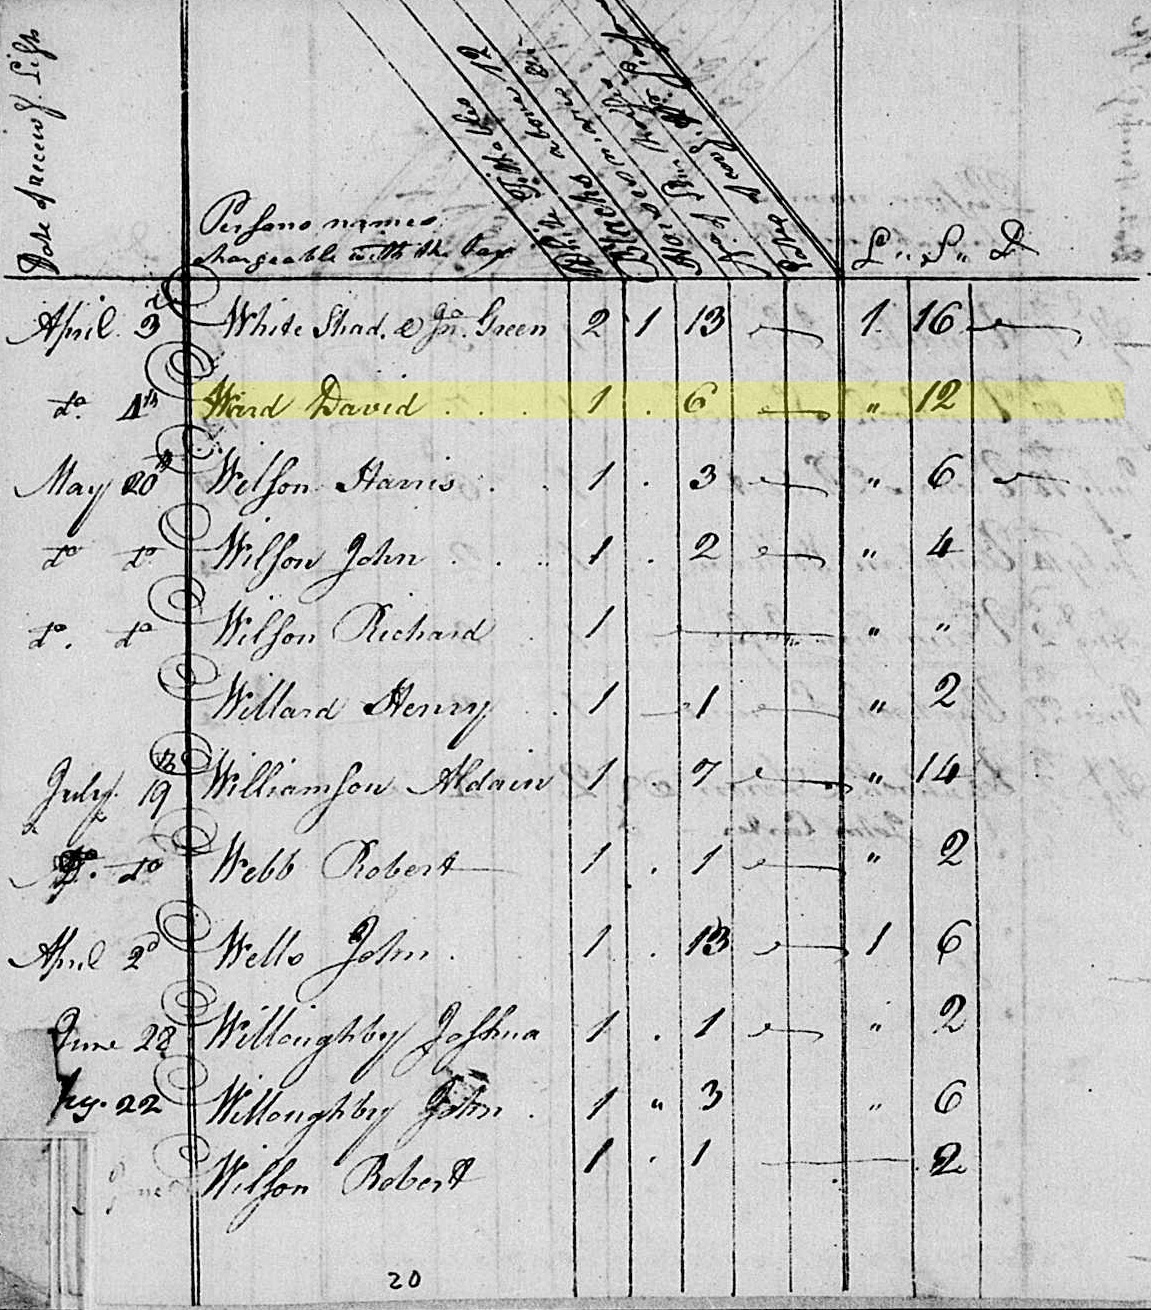 Date of receivg. Lists
Persons names chargeable with the tax
White Tithables
Blacks above 12
L " S " D
April 3d White Shad. & Jno. Green 2 1 13 1 16
do 4th Ward David . . . . 1 . 6 " 12
May 20th Wilson Harris . . 1 . 3 " 6
do do Wilson John . . . . 1 . 2 " 4
do. do Wilson Richard . 1 " "
Willard Henry . 1 1 " 2
July 19th Williamson Aldain 1 7 " 14
do. do Webb Robert 1 . 1 " 2
April 2d Wells John . . 1 . 13 1 6
June 28 Willoughby Joshua 1 . 1 " 2
22 Willoughby John . 1 " 3 " 6
Wilson Robert 1 . 1 2
20